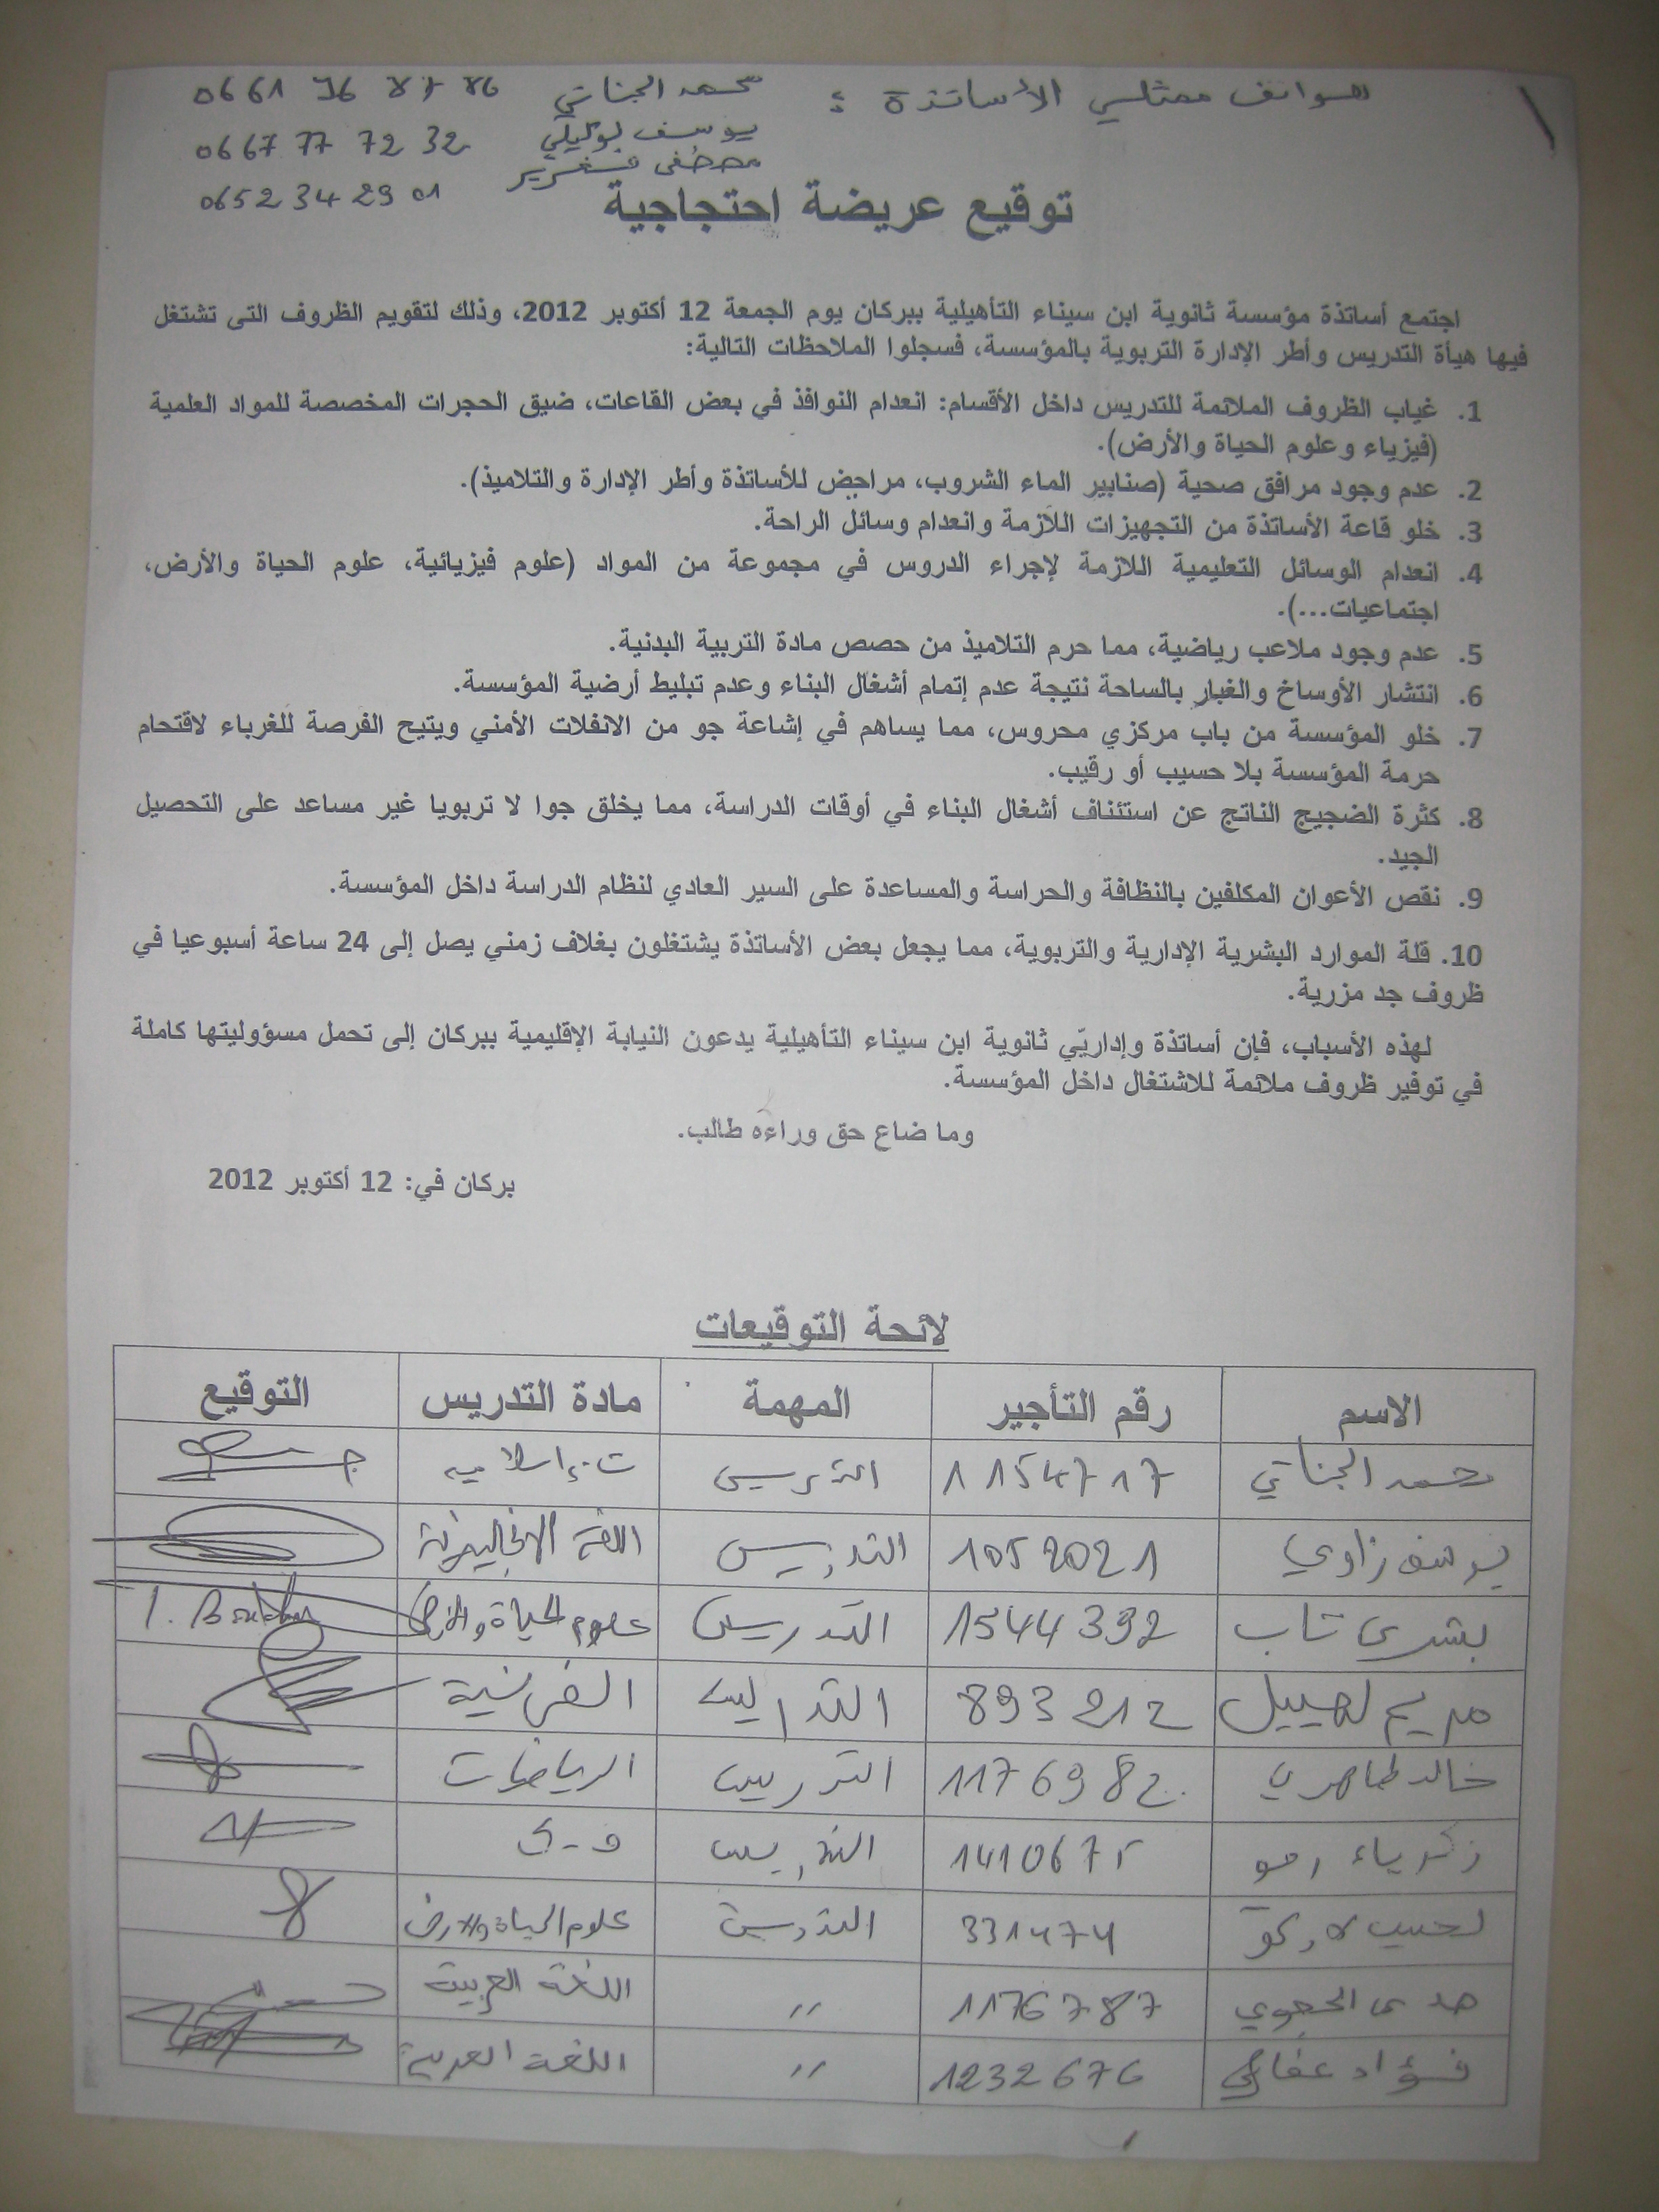 هواتف ممثلي الأساتذة : محمد الجناتي 0661 76 87 86
يوسف 0667 77 72 32
مصطفى 0652 34 29 01
توقيع عريضة احتجاجية
اجتمع أساتذة مؤسسة ثانوية ابن سيناء التأهيلية ببركان يوم الجمعة 12 أكتوبر 2012، وذلك لتقويم الظروف التى تشتغل
فيها هيأة التدريس وأطر الإدارة التربوية بالمؤسسة، فسجلوا الملاحظات التالية:
1. غياب الظروف الملائمة للتدريس داخل الأقسام: انعدام النوافذ في بعض القاعات، ضيق الحجرات المخصصة للمواد العلمية
(فيزياء وعلوم الحياة والأرض).
2. عدم وجود مرافق صحية (صنابير الماء الشروب، مراحيض للأساتذة وأطر الإدارة والتلاميذ).
3. خلو قاعة الأساتذة من التجهيزات اللازمة وانعدام وسائل الراحة.
4. انعدام الوسائل التعليمية اللازمة لإجراء الدروس في مجموعة من المواد (علوم فيزيائية، علوم الحياة والأرض،
اجتماعيات...).
5. عدم وجود ملاعب رياضية، مما حرم التلاميذ من حصص مادة التربية البدنية.
6. انتشار الأوساخ والغبار بالساحة نتيجة عدم إتمام أشغال البناء وعدم تبليط أرضية المؤسسة.
7. خلو المؤسسة من باب مركزي محروس، مما يساهم في إشاعة جو من الانفلات الأمني ويتيح الفرصة للغرباء لاقتحام
حرمة المؤسسة بلا حسيب أو رقيب.
8. كثرة الضجيج الناتج عن استئناف أشغال البناء في أوقات الدراسة، مما يخلق جوا لا تربويا غير مساعد على التحصيل
الجيد.
9. نقص الأعوان المكلفين بالنظافة والحراسة والمساعدة على السير العادي لنظام الدراسة داخل المؤسسة.
10. قلة الموارد البشرية الإدارية والتربوية، مما يجعل بعض الأساتذة يشتغلون بغلاف زمني يصل إلى 24 ساعة أسبوعيا في
ظروف جد مزرية.
لهذه الأسباب، فإن أساتذة وإداريّي ثانوية ابن سيناء التأهيلية يدعون النيابة الإقليمية ببركان إلى تحمل مسؤوليتها كاملة
في توفير ظروف ملائمة للاشتغال داخل المؤسسة.
وما ضاع حق وراءه طالب.
بركان في: 12 أكتوبر 2012
لائحة التوقيعات
الاسم رقم التأجير المهمة مادة التدريس التوقيع
محمد الجناتي 1154717 التدريس ت. إسلامية
يوسف زاوي 1052021 التدريس اللغة الانجليزية
بشرى تاب 1544392 التدريس علوم الحياة والأرض
مريم لهبيل 893212 التدريس الفرنسية
خالد طاهري 1176982 التدريس الرياضيات
زكرياء رمو 1410675 التدريس ف.ك
لحبيب 331474 التدريس علوم الحياة والارض
هدى 1176787 " اللغة العربية
فؤاد 1232676 " اللغة العربية